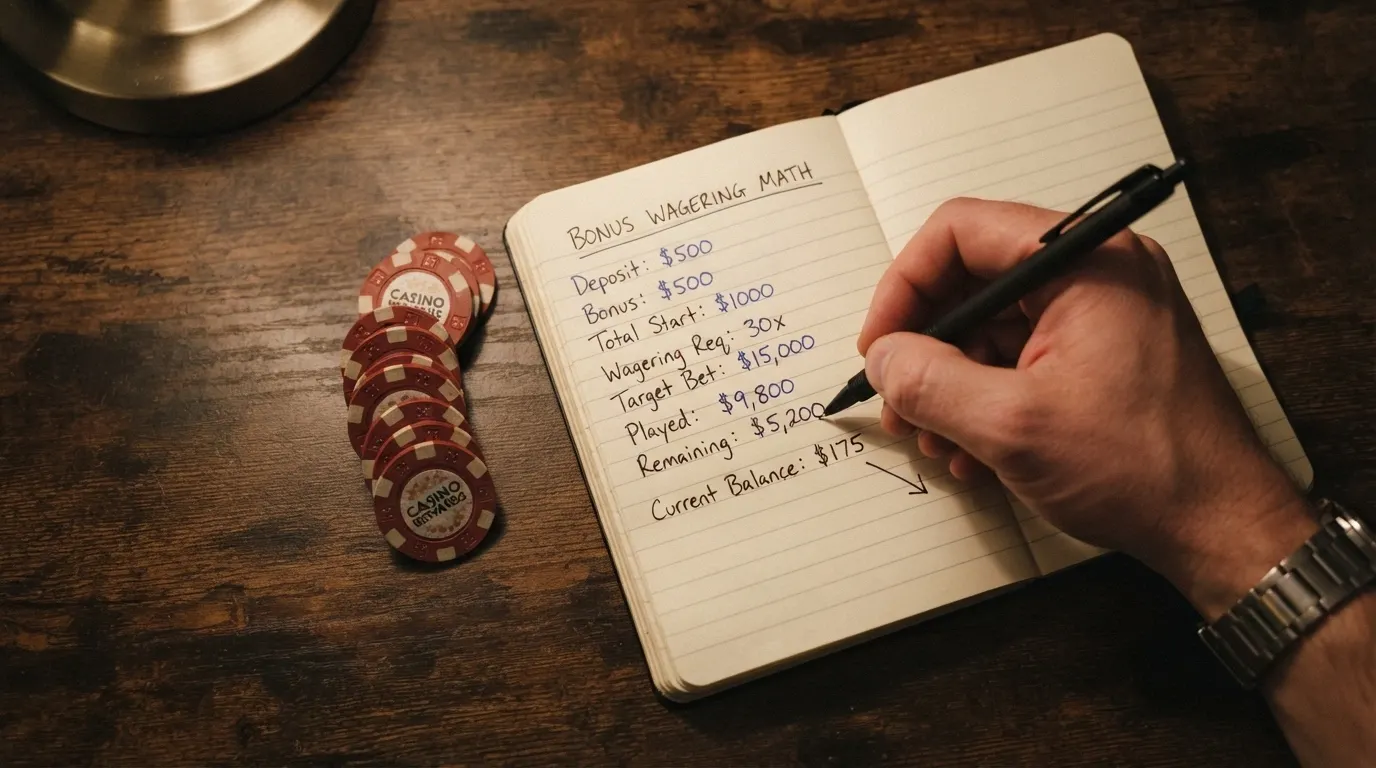 CASINO
CASINO
BONUS WAGERING MATH
Deposit: $500
Bonus: $500
Total Start: $1000
Wagering Req: 30x
Target Bet: $15,000
Played: $9,800
Remaining: $5,200
Current Balance: $175